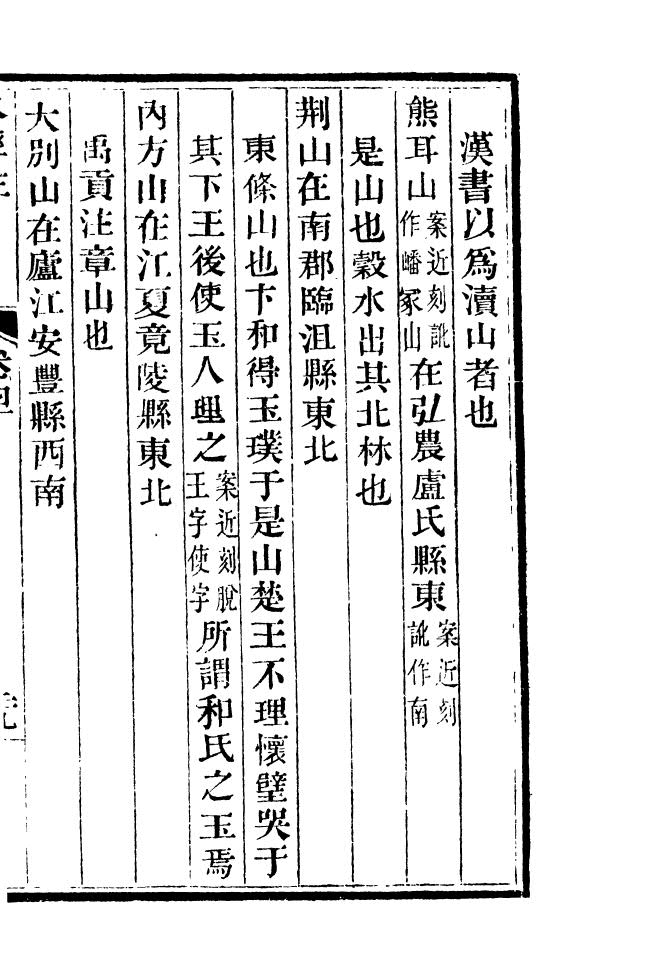 漢書以爲瀆山者也
熊耳山案近刻訛作嶓冢山在弘農盧氏縣東案近刻訛作南
是山也穀水出其北林也
荆山在南郡臨沮縣東北
東條山也卞和得玉璞于是山楚王不理懷璧哭于
其下王後使玉人理之案近刻脫王字使字所謂和氏之玉焉
內方山在江夏竟陵縣東北
禹貢注章山也
大別山在廬江安豐縣西南